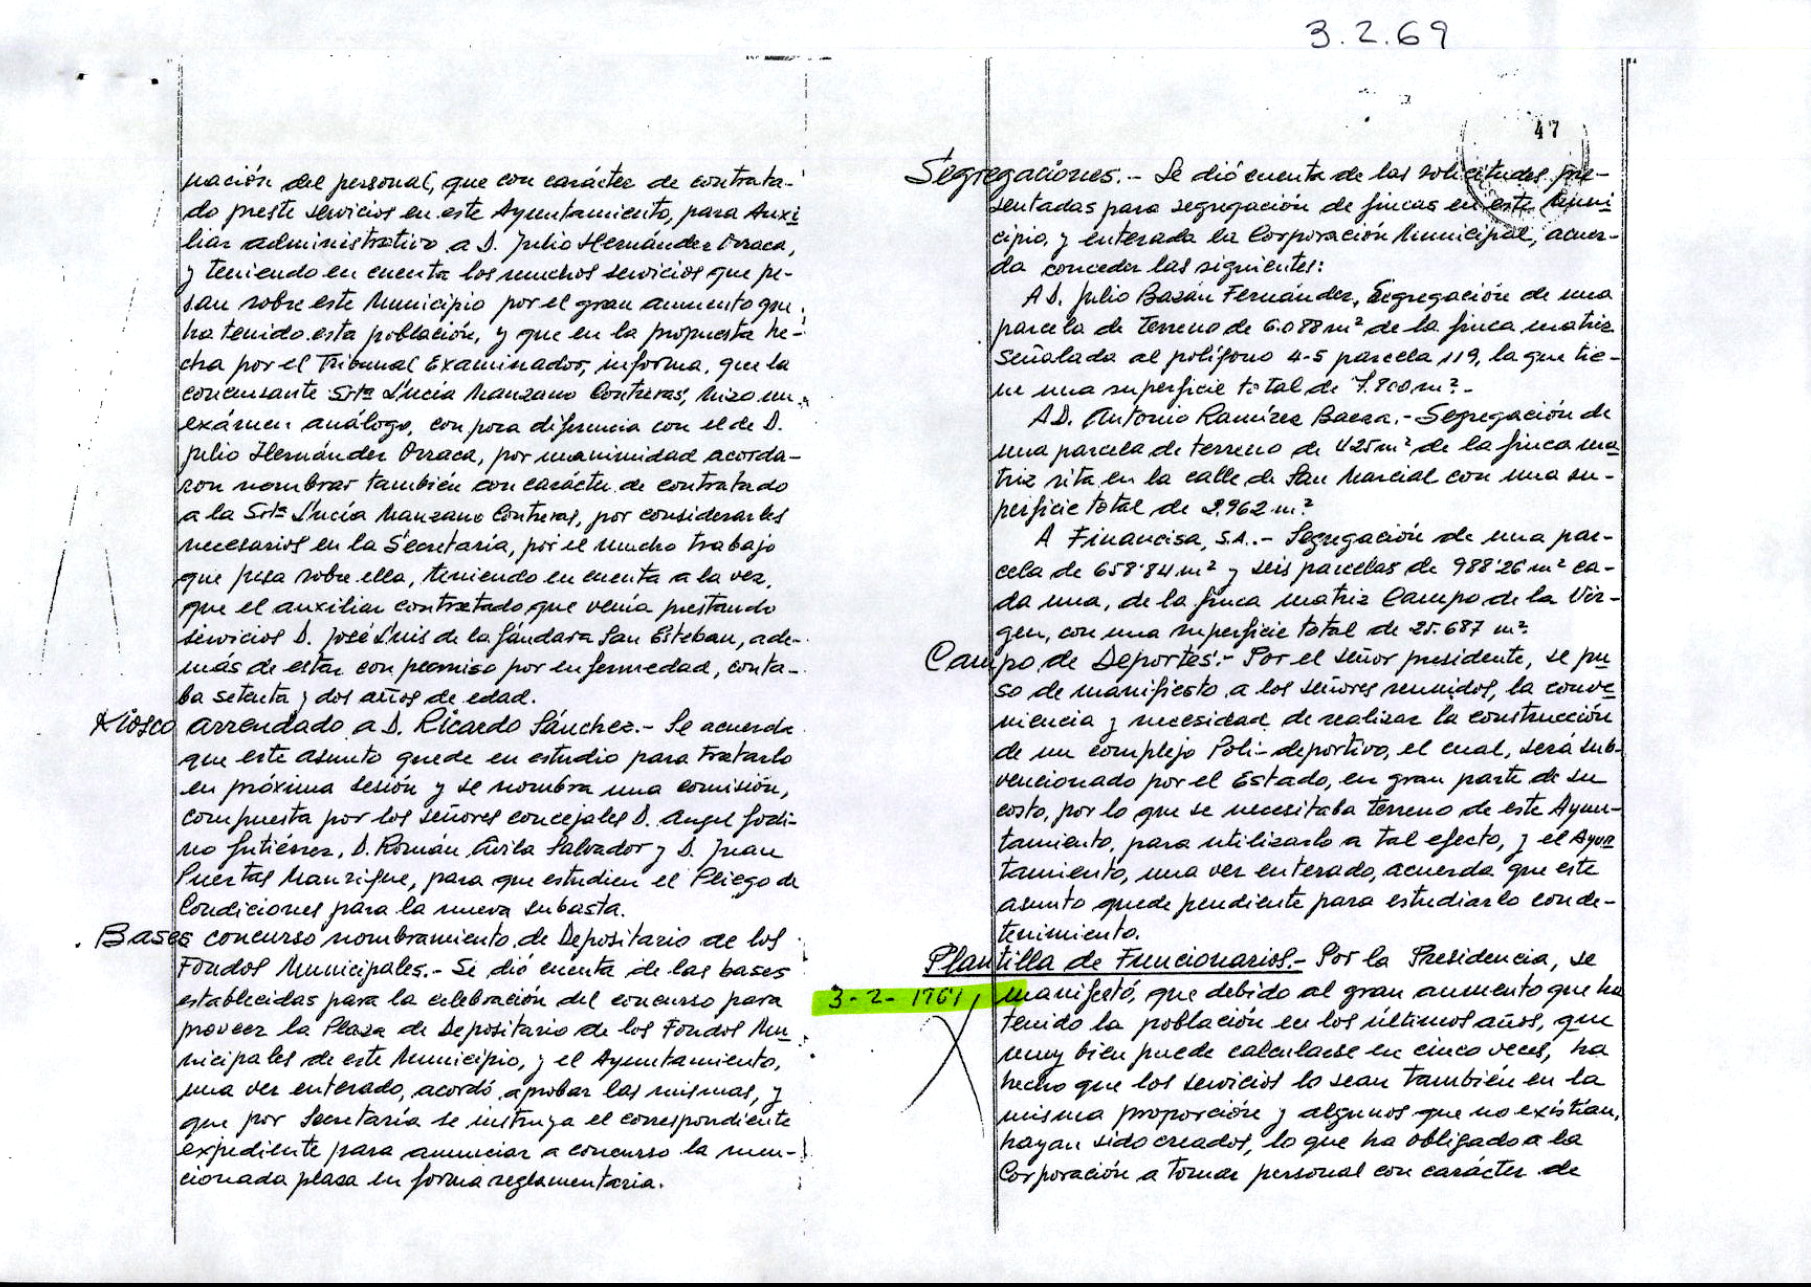 3.2.69
nación del personal, que con carácter de contrata-
do preste servicios en este Ayuntamiento, para Auxi
liar administrativo a D. Julio Hernández Orraca,
y teniendo en cuenta los muchos servicios que pe-
san sobre este Municipio por el gran aumento que
ha tenido esta población, y que en la propuesta he-
cha por el Tribunal Examinador, informa, que la
concursante Srtª Lucía Manzano Contreras, hizo un
exámen análogo, con poca diferencia con el de D.
Julio Hernández Orraca, por unanimidad acorda-
ron nombrar también con carácter de contratado
a la Srtª Lucía Manzano Contreras, por considerarles
necesarios en la Secretaría, por el mucho trabajo
que pesa sobre ella, teniendo en cuenta a la vez,
que el auxiliar contratado que venía prestando
servicios D. José Luis de la Gándara San Esteban, ade-
más de estar con permiso por enfermedad, conta-
ba setenta y dos años de edad.
Kiosco arrendado a D. Ricardo Sánchez.- Se acuerda
que este asunto quede en estudio para tratarlo
en próxima sesión y se nombra una comisión,
compuesta por los señores concejales D. Angel Godi-
no Gutiérrez, D. Román Avila Salvador y D. Juan
Puertas Manrique, para que estudien el Pliego de
Condiciones para la nueva subasta.
Bases concurso nombramiento de Depositario de los
Fondos Municipales.- Se dió cuenta de las bases
establecidas para la celebración del concurso para
proveer la Plaza de Depositario de los Fondos Mu
nicipales de este Municipio, y el Ayuntamiento,
una vez enterado, acordó aprobar las mismas, y
que por Secretaría se instruya el correspondiente
expediente para anunciar a concurso la men-
cionada plaza en forma reglamentaria.
47
Segregaciones.- Se dió cuenta de las solicitudes pre-
sentadas para segregación de fincas en este Muni
cipio, y enterada la Corporación Municipal, acuer-
da conceder las siguientes:
A D. Julio Bazán Fernández, Segregación de una
parcela de terreno de 6.088 m² de la finca matriz
señalada al polígono 4-5 parcela 119, la que tie-
ne una superficie total de 7.800 m².-
A D. Antonio Ramírez Baeza.- Segregación de
una parcela de terreno de 425 m² de la finca ma
triz sita en la calle de San Marcial con una su-
perficie total de 2.962 m²
A Financisa, S.A..- Segregación de una par-
cela de 658'84 m² y seis parcelas de 988'26 m² ca-
da una, de la finca matriz Campo de la Vir-
gen, con una superficie total de 25.687 m².
Campo de Deportes.- Por el señor presidente, se pu
so de manifiesto a los señores reunidos, la conve
niencia y necesidad de realizar la construcción
de un complejo Poli-deportivo, el cual, será sub-
vencionado por el Estado, en gran parte de su
costo, por lo que se necesitaba terreno de este Ayun-
tamiento, para utilizarlo a tal efecto, y el Ayun
tamiento, una vez enterado, acuerda que este
asunto quede pendiente para estudiarlo conde-
tenimiento.
Plantilla de Funcionarios.- Por la Presidencia, se
3-2-1969 manifestó, que debido al gran aumento que ha
tenido la población en los últimos años, que
muy bien puede calcularse en cinco veces, ha
hecho que los servicios lo sean también en la
misma proporción y algunos que no existían,
hayan sido creados, lo que ha obligado a la
Corporación a tomar personal con carácter de